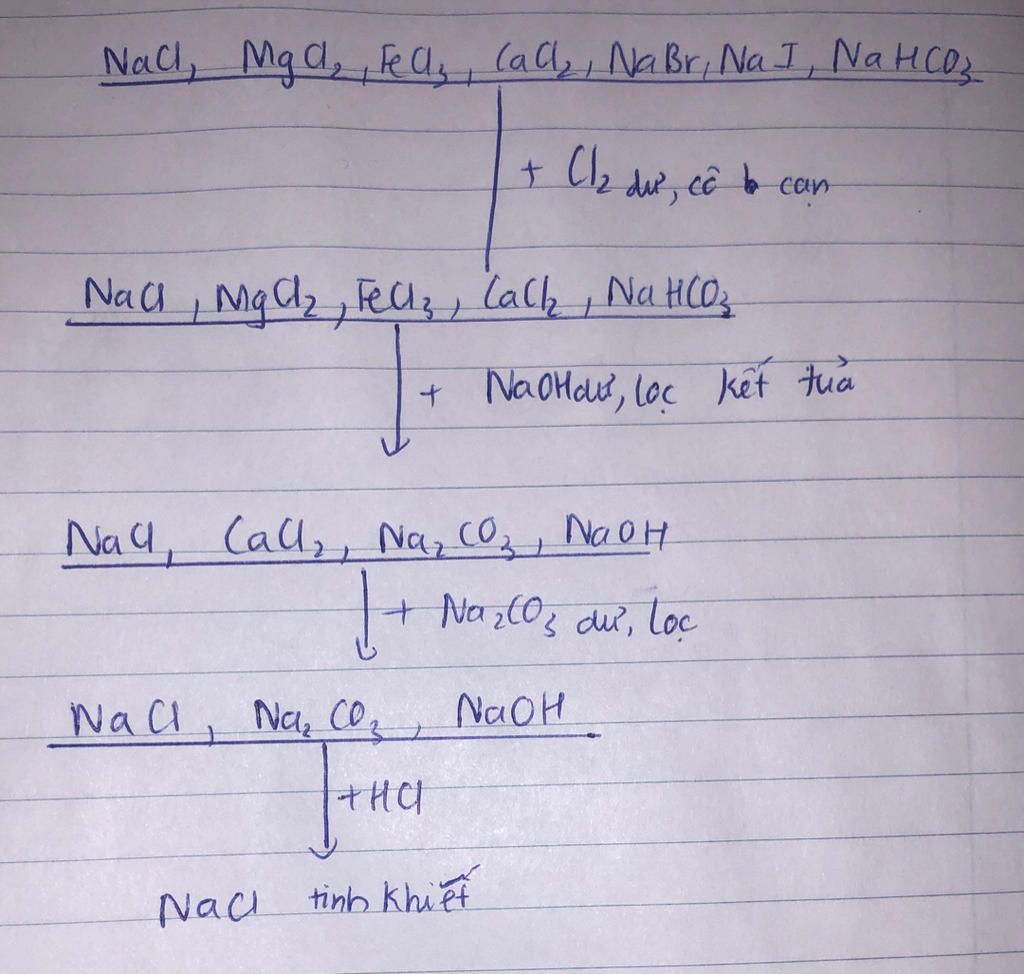 NaCl, MgCl₂, FeCl₃, CaCl₂, NaBr, NaI, NaHCO₃
+ Cl₂ dư, cô cạn
NaCl, MgCl₂, FeCl₃, CaCl₂, NaHCO₃
+ NaOH dư, lọc kết tuả
NaCl, CaCl₂, Na₂CO₃, NaOH
+ Na₂CO₃ dư, lọc
NaCl, Na₂CO₃, NaOH
+HCl
NaCl tinh khiết